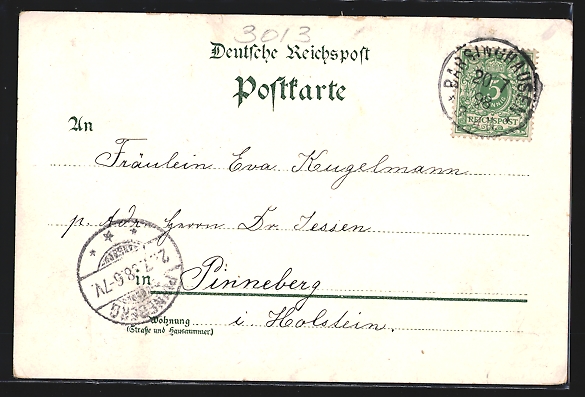 3013
Deutsche Reichspost
Postkarte
BARSINGHAUSEN
20
98
5
REICHSPOST
An
Fräulein Eva Kugelmann
p. Adr. Herrn Dr. Jessen
in Pinneberg
PINNEBERG
Wohnung
(Straße und Hausnummer)
i. Holstein.